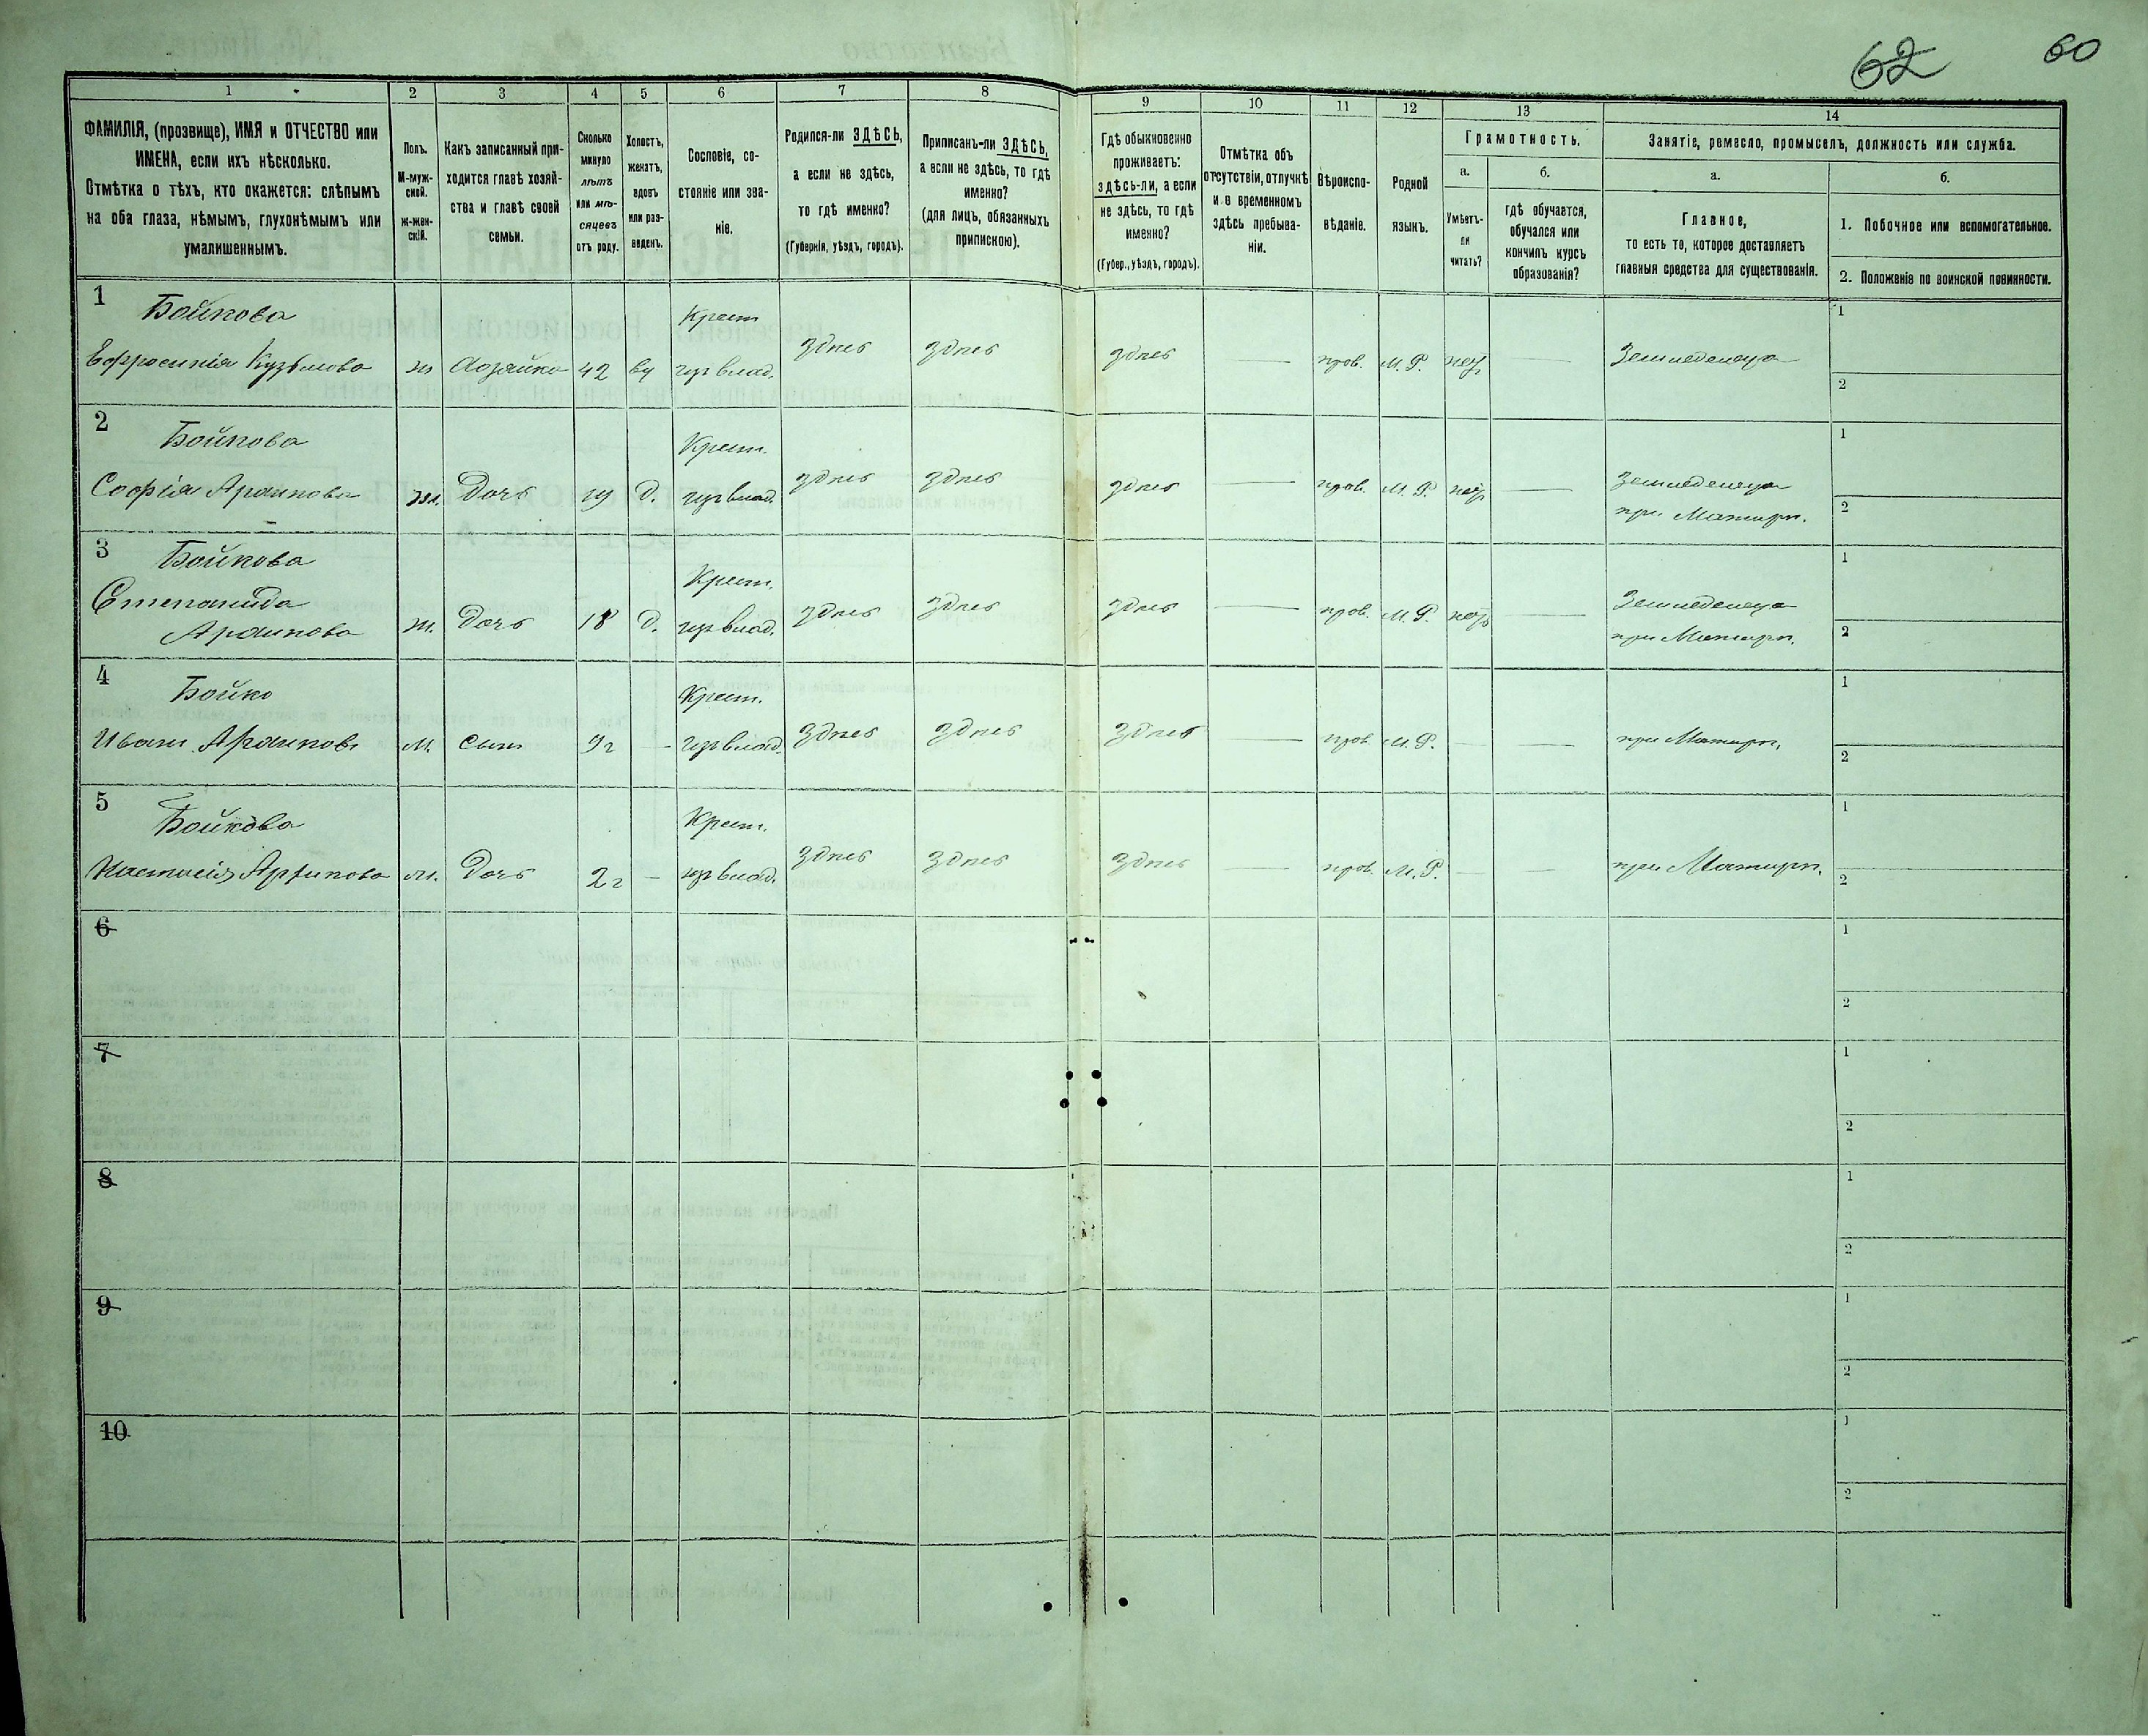 62 60
1 2 3 4 5 6 7 8 9 10 11 12 13 14
ФАМИЛІЯ, (прозвище), ИМЯ и ОТЧЕСТВО или
ИМЕНА, если ихъ нѣсколько.
Отмѣтка о тѣхъ, кто окажется: слѣпымъ
на оба глаза, нѣмымъ, глухонѣмымъ или
умалишеннымъ.
Полъ.
М-муж-
ской.
ж-жен-
скій.
Какъ записанный при-
ходится главѣ хозяй-
ства и главѣ своей
семьи.
Сколько
минуло
лѣтъ
или мѣ-
сяцевъ
отъ роду.
Холостъ,
женатъ,
вдовъ
или раз-
веденъ.
Сословіе, со-
стояніе или зва-
ніе.
Родился-ли ЗДѢСЬ,
а если не здѣсь,
то гдѣ именно?
(Губернія, уѣздъ, городъ).
Приписанъ-ли ЗДѢСЬ,
а если не здѣсь, то гдѣ
именно?
(для лицъ, обязанныхъ
припискою).
Гдѣ обыкновенно
проживаетъ:
здѣсь-ли, а если
не здѣсь, то гдѣ
именно?
(Губер., уѣздъ, городъ).
Отмѣтка объ
отсутствіи, отлучкѣ
и о временномъ
здѣсь пребыва-
ніи.
Вѣроиспо-
вѣданіе.
Родной
языкъ.
Грамотность.
а.
Умѣетъ-
ли
читать?
б.
гдѣ обучается,
обучался или
кончилъ курсъ
образованія?
Занятіе, ремесло, промыселъ, должность или служба.
а.
Главное,
то есть то, которое доставляетъ
главныя средства для существованія.
б.
1. Побочное или вспомогательное.
2. Положеніе по воинской повинности.
1 Бойкова Крест. 1
Ефросинія Кузьмова ж Хозяйка 42 вд изъ влад. здѣсь здѣсь здѣсь — прав. М. Р. нѣтъ — Земледелица
2
2 Бойкова Крест. 1
Софія Архипова ж. Дочь 19 д. изъ влад. здѣсь здѣсь здѣсь — прав. М. Р. нѣтъ — Земледелица
при Матери. 2
3 Бойкова Крест. 1
Степанида
Архипова ж. Дочь 18 д. изъ влад. здѣсь здѣсь здѣсь — прав. М. Р. нѣтъ — Земледелица
при Матери. 2
4 Бойко Крест. 1
Иванъ Архиповъ М. Сынъ 9 г — изъ влад. здѣсь здѣсь здѣсь — прав. М. Р. — — при Матери.
2
5 Бойкова Крест. 1
Настасія Архипова ж. Дочь 2 г — изъ влад. здѣсь здѣсь здѣсь — прав. М. Р. — — при Матери.
2
6 1
2
7 1
2
8 1
2
9 1
2
10 1
2